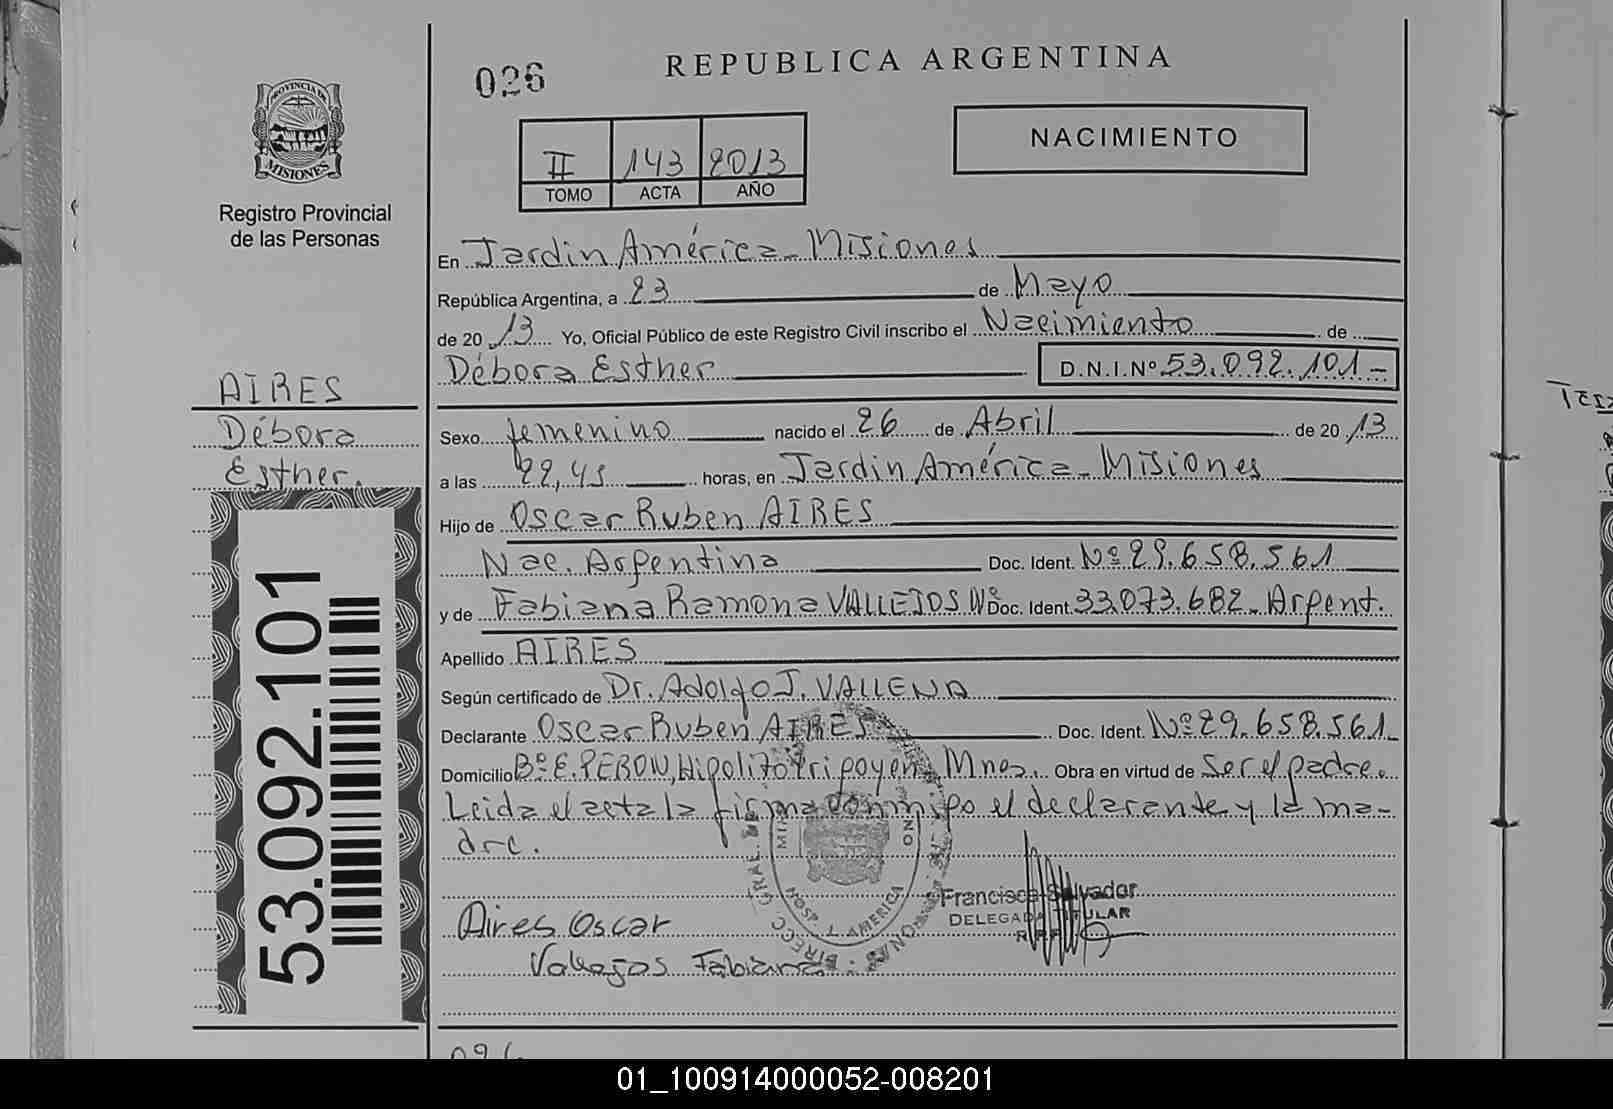 026
REPUBLICA ARGENTINA
PROVINCIA DE
MISIONES
Registro Provincial
de las Personas
II 143 2013
TOMO ACTA AÑO
NACIMIENTO
En Jardin América - Misiones
República Argentina, a 23 de Mayo
de 2013 Yo, Oficial Público de este Registro Civil inscribo el Nacimiento de
Débora Esther D.N.I.Nº 53.092.101 -
AIRES
Débora
Esther.
Sexo femenino nacido el 26 de Abril de 2013
a las 22,45 horas, en Jardin América - Misiones
Hijo de Oscar Ruben AIRES
Nac. Argentina Doc. Ident. Nº 29.658.561
y de Fabiana Ramona VALLEJOS Nº Doc. Ident. 33.073.682 - Argent.
Apellido AIRES
Según certificado de Dr. Adolfo J.
Declarante Oscar Ruben AIRES Doc. Ident. Nº 29.658.561
Domicilio Bº E. PERON, Hipolito Yrigoyen, Mnes. Obra en virtud de Ser el padre.
Leida el acta la firma conmigo el declarante y la ma-
dre.
53.092.101
HOSP. J. AMERICA
Francisco Salvador
DELEGADA TITULAR
Aires Oscar
Vallejos Fabiana
01_100914000052-008201